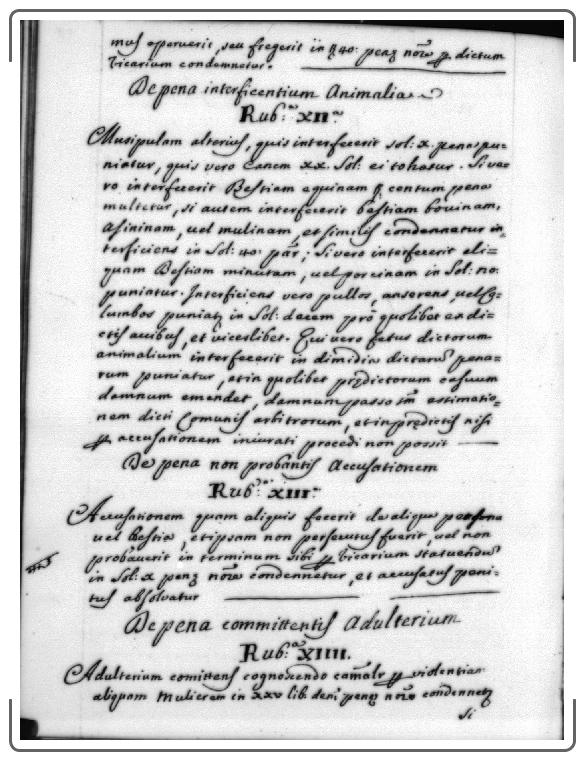 mus operuerit, seu fregerit in ß 40: penȝ noĩe ꝑ dictum
Vicarium condemnetur.
De pena interficentium Animalia
Rub.ª XII.ª
Musipulam alterius, quis interfecerit sol: x. penas pu=
niatur, quis vero Canem xx. Sol: ei tollatur. Si ve=
ro interfecerit Bestiam equinam centum pena
multetur, si autem interfecerit bestiam bovinam,
Asininam, vel mulinam, et similis condennetur in=
terficiens in Sol: 40: par; Si vero interfecerit ali=
quam Bestiam minutam, vel porcinam in Sol: no:
puniatur. Interficiens vero pullos, anserens, vel Co=
lumbos puniatȝ in Sol: decem pro quolibet ex di=
ctis avibus, et viceslibet. Qui vero fetus dictorum
animalium interfecerit in dimidia dictarũ pena=
rum puniatur, et in quolibet predictorum casuum
damnum emendet, damnum passo tm̃ estimatio=
nem dicti Comunis arbitrorum, et in predictis nisi
ꝑ accusationem iniurati procedi non possit
De pena non probantis Accusationem
Rub.ª XIII.ª
Accusationem quam aliquis fecerit de aliqua persona
vel bestia, et ipsam non persecutus fuerit, vel non
probaverit in terminum sibi ꝑ Vicarium statuendũ
in Sol: x penȝ noĩe condennetur, et accusatus peni=
tus absolvatur
De pena committentis Adulterium
Rub.ª XIIII.
Adulterium comittens cognoscendo carnalr ꝑ violentiam
aliquam Mulierem in xxv lib: den: penȝ noĩe condennetȝ
Si